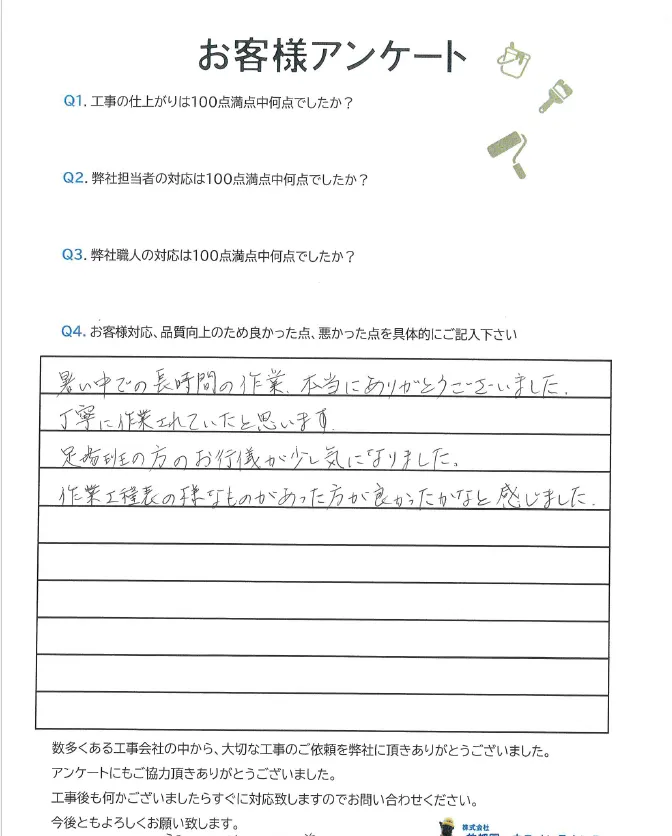 お客様アンケート
Q1. 工事の仕上がりは100点満点中何点でしたか？
Q2. 弊社担当者の対応は100点満点中何点でしたか？
Q3. 弊社職人の対応は100点満点中何点でしたか？
Q4. お客様対応、品質向上のため良かった点、悪かった点を具体的にご記入下さい
暑い中での長時間の作業、本当にありがとうございました。
丁寧に作業されていたと思います。
足場班の方のお行儀が少し気になりました。
作業工程表の様なものがあった方が良かったかなと感じました。
数多くある工事会社の中から、大切な工事のご依頼を弊社に頂きありがとうございました。
アンケートにもご協力頂きありがとうございました。
工事後も何かございましたらすぐに対応致しますのでお問い合わせください。
今後ともよろしくお願い致します。
株式会社